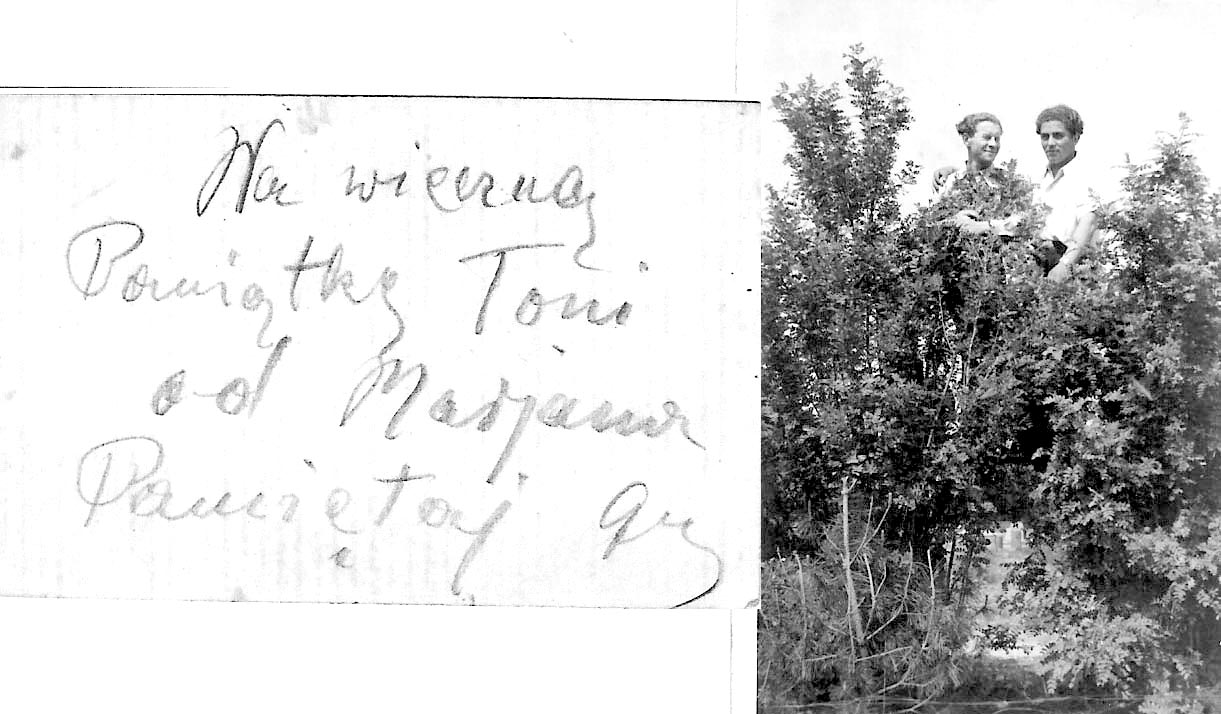 Na wierną
Pamiątkę Toni
od Marjana
Pamiętaj